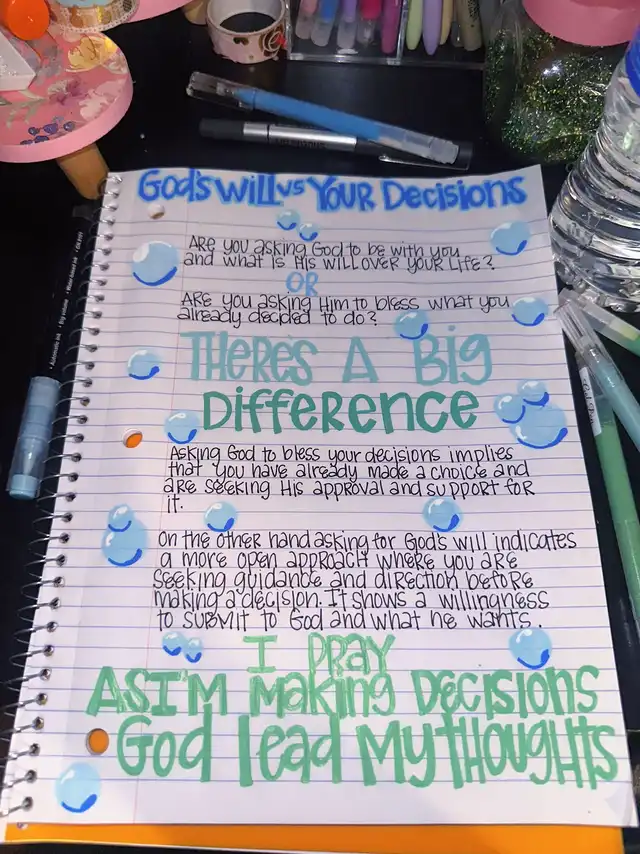 God's Will vs Your Decisions
Are you asking God to be with you
and what is His will over your life?
OR
Are you asking Him to bless what you
already decided to do?
There's A Big
Difference
Asking God to bless your decisions implies
that you have already made a choice and
are seeking His approval and support for
it.
On the other hand asking for God's will indicates
a more open approach where you are
seeking guidance and direction before
making a decision. It shows a willingness
to submit to God and what he wants.
I Pray
As I'm Making Decisions
God lead My thoughts